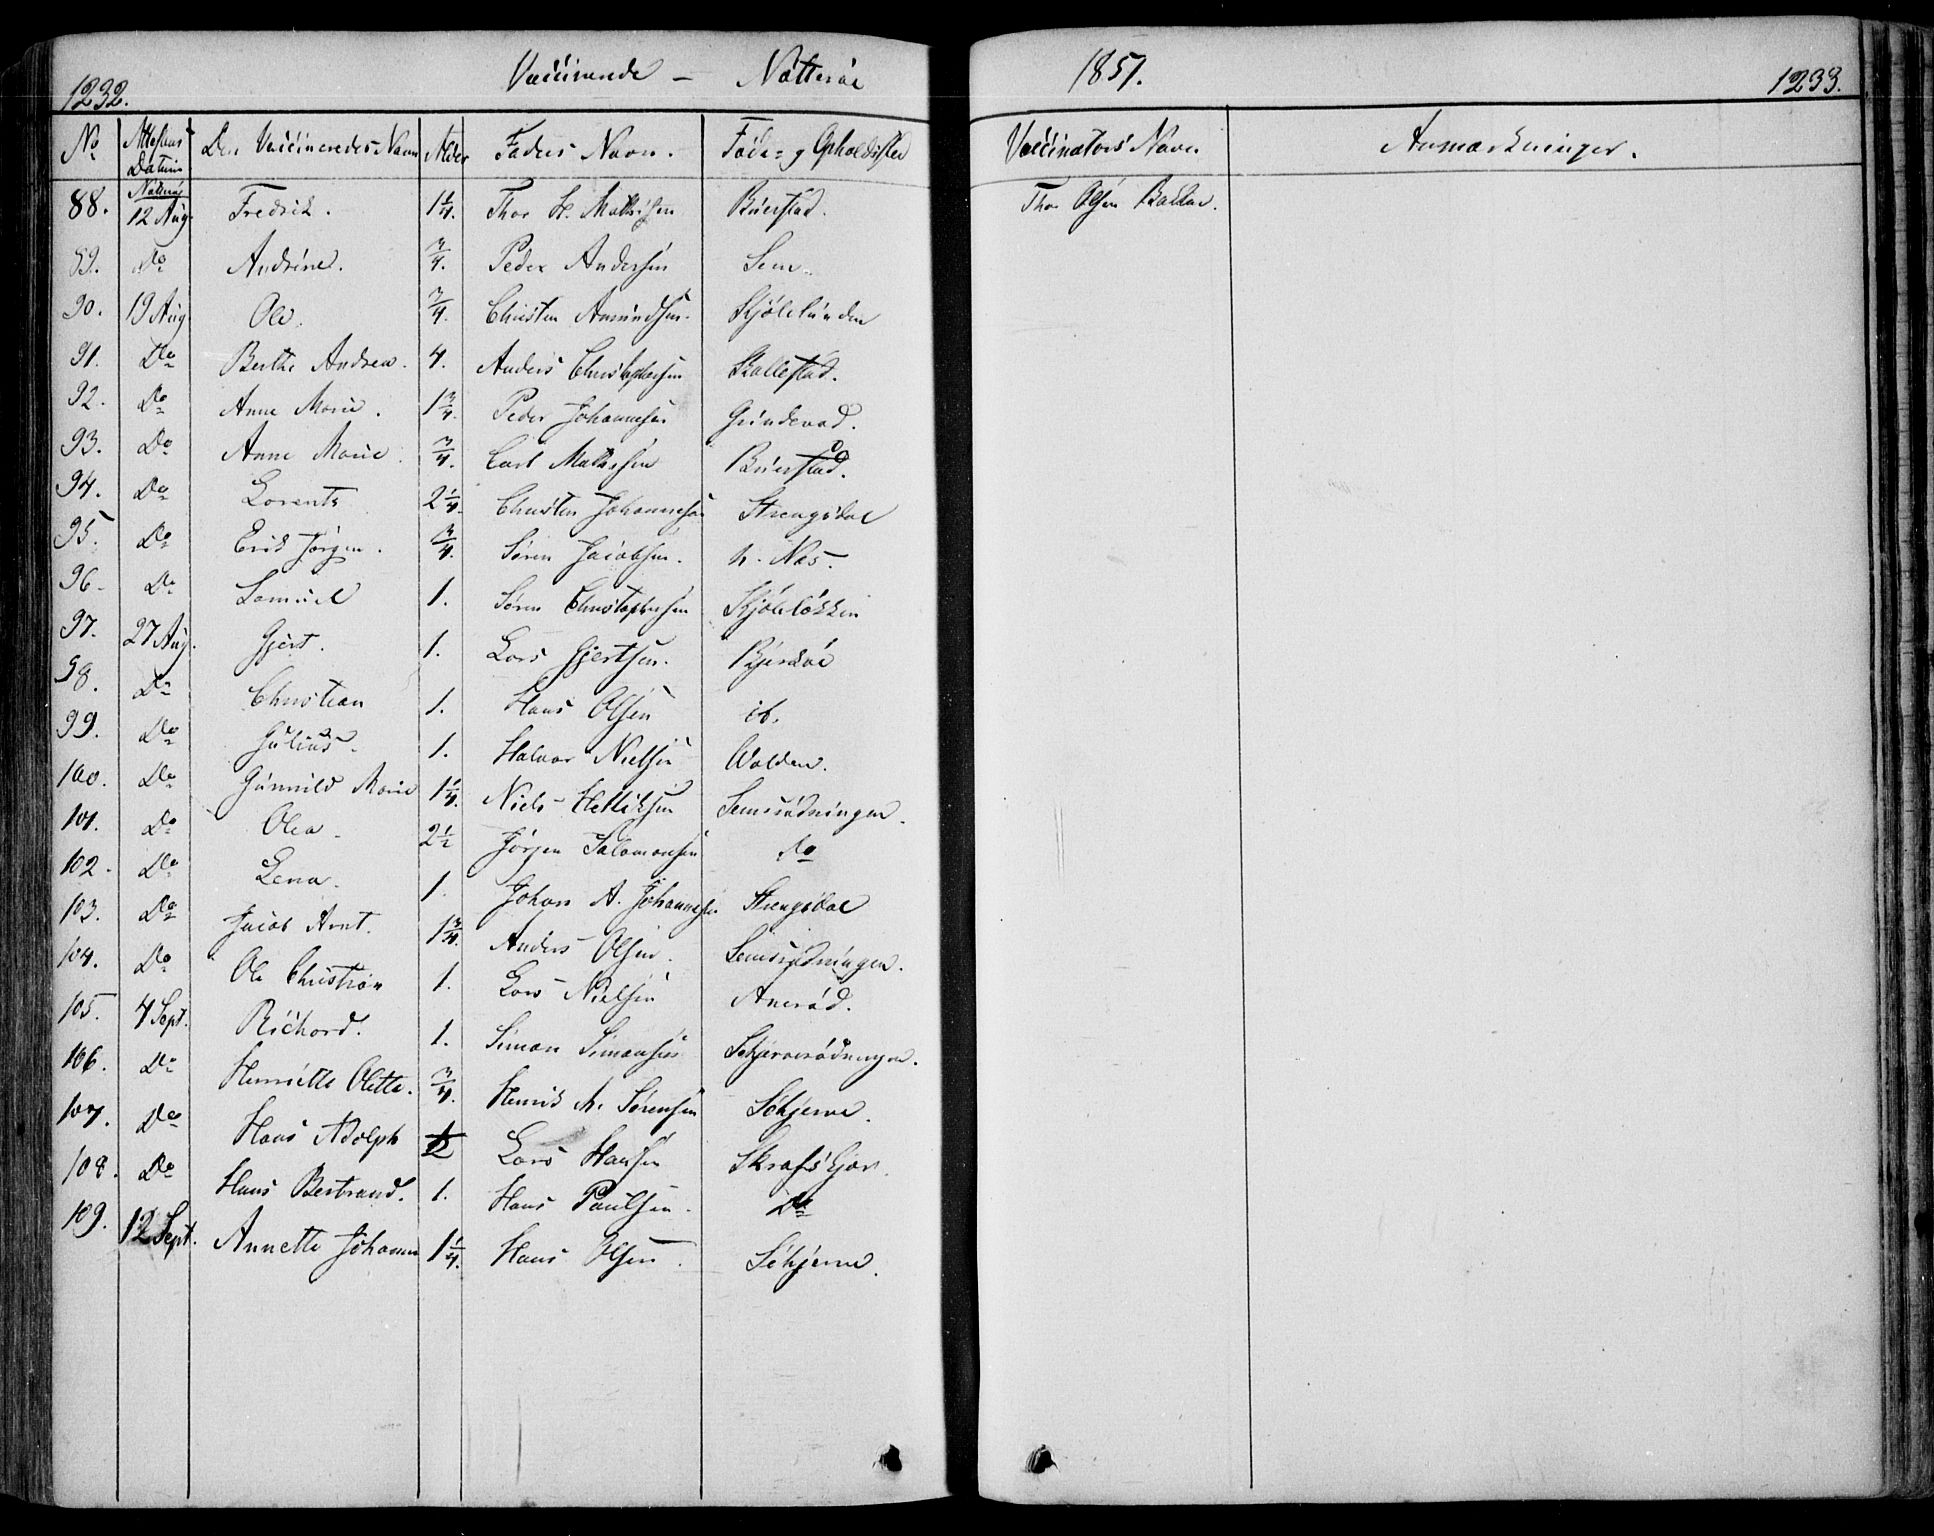 1232. Vaccinerede – Nøtterøe 1851. 1233.
No Attestens Datum Den Vaccineredes Navn Alder Faders Navn. Føde- og Opholdssted Vaccinators Navn Anmærkninger.
88. Nøtterøe 12 Aug. Fredrik. 1 1/4. Thor H. Mathisen Buerstad. Thor Olsen
89. Do Andrine. 3/4. Peder Andersen Sem.
90. 19 Aug. Ole. 3/4. Christen Amundsen. Kjølelunden
91. Do Berthe Andrea. 4. Anders Christophersen Skallestad.
92. Do Anne Marie. 1 3/4. Peder Johannesen Grindevad.
93. Do Anne Marie. 3/4. Carl Mathisen Buerstad.
94. Do Lorents 2 1/4. Christen Johannesen Strengsdal
95. Do Erik Jørgen. 3/4. Søren Jacobsen. n. Næs.
96. Do Samuel 1. Søren Christophersen Kjøleløkken
97. 27 Aug. Gjert. 1. Lars Gjertsen. Bjerkøe
98. Do Christian 1. Hans Olsen ib.
99. Do Julius. 1. Halvor Nielsen Wolden.
100. Do Gunnild Marie 1 1/4. Niels Helliksen Semsrødningen.
101. Do Olea. 2 1/2 Jørgen Salomonsen do
102. Do Lena. 1. Johan A. Johannesen Strengsdal
103. Do Jacob Arnt. 1 3/4. Anders Olsen. Semsrødningen.
104. Do Ole Christian 1. Lars Nielsen Anerød.
105. 4 Sept. Richard. 1. Simon Simonsen Schjerverødningen.
106. Do Henriette Olette. 3/4. Henrik M. Sørensen Schjerve.
107. Do Hans Adolph 1/2 Lars Hansen Skrafskjær.
108. Do Hans Bertrand. 1. Hans Paulsen. Do
109. 12 Sept. Annette Johanne 1 1/4. Hans Olsen. Schjerve.